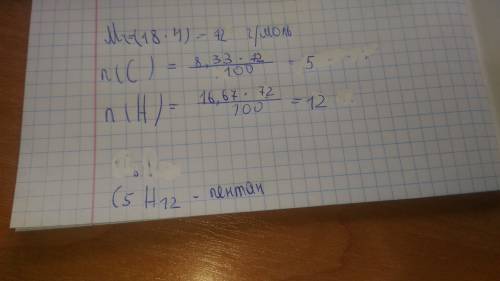 Mr=(18·4) = 72 г/моль
n(C) = 8,33·72 / 100 = 5
n(H) = 16,67·72 / 100 = 12
C5H12 - пентан